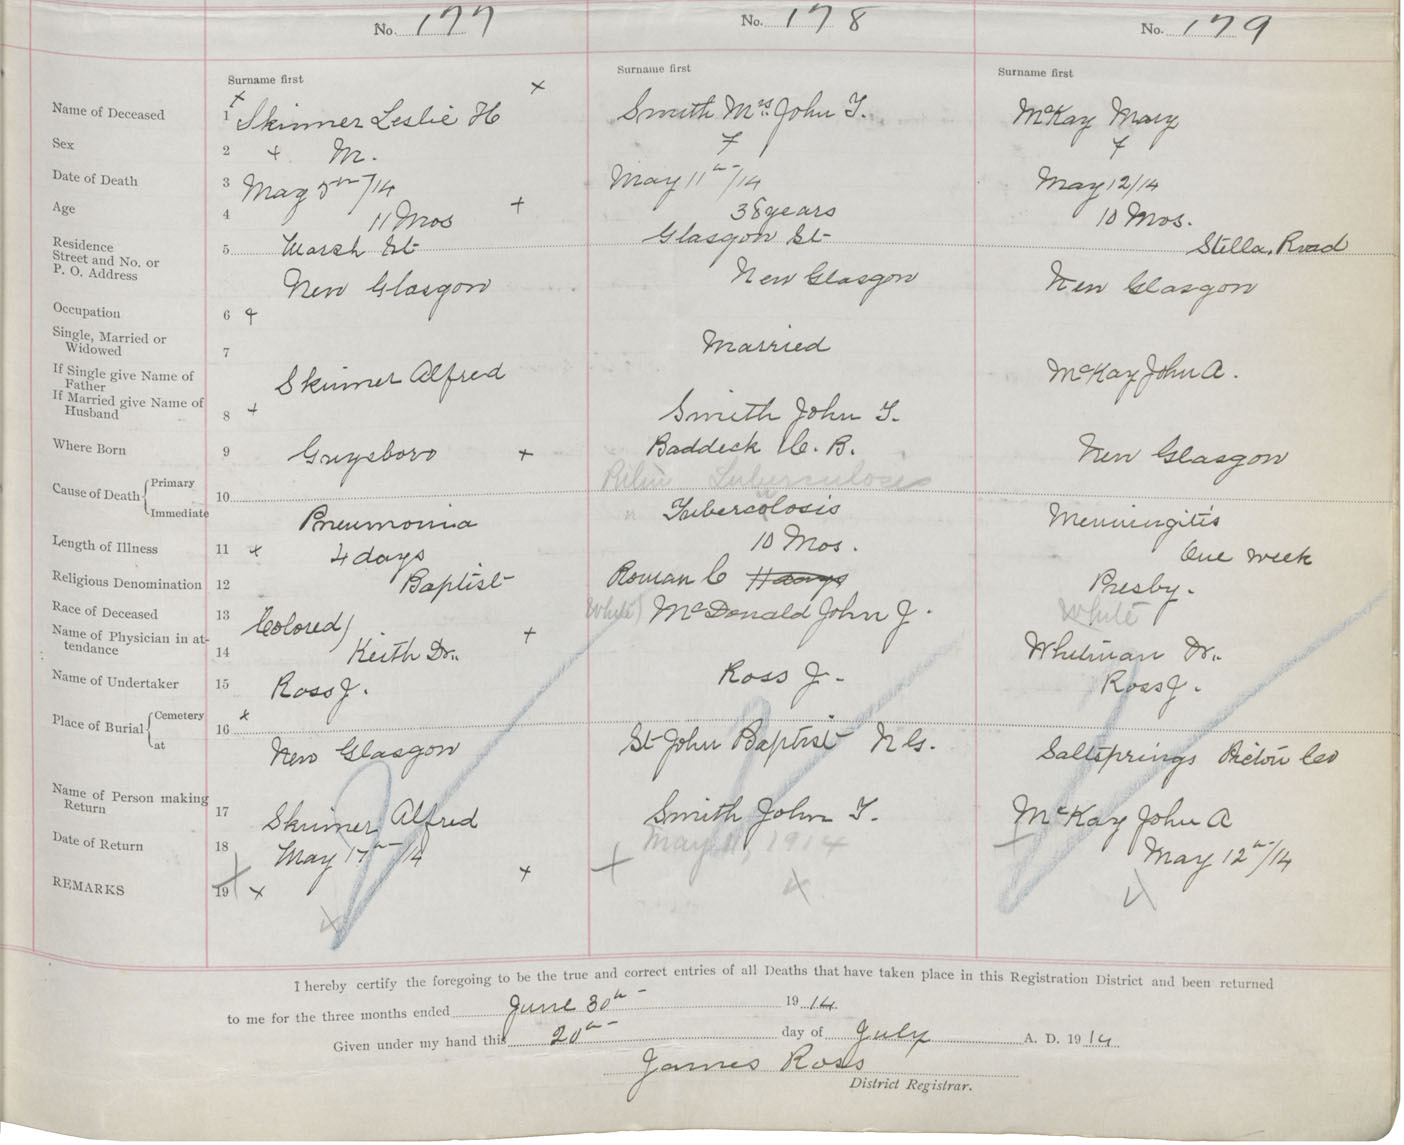 No. 177 No. 178 No. 179
Surname first Surname first Surname first
Name of Deceased 1 Skinner Leslie H Smith Mrs John T. McKay Mary
Sex 2 M. F F
Date of Death 3 May 5th/14 May 11th/14 May 12/14
Age 4 11 Mos 38 years 10 Mos.
Residence 5 Marsh St Glasgow St Stella Road
Street and No. or
P. O. Address New Glasgow New Glasgow New Glasgow
Occupation 6
Single, Married or
Widowed 7 Married
If Single give Name of
Father Skinner Alfred McKay John A.
If Married give Name of
Husband 8 Smith John T.
Where Born 9 Guysboro Baddeck C. B. New Glasgow
Cause of Death Primary 10 Tuberculosis
Immediate Pneumonia Tubercolosis Menningitis
Length of Illness 11 4 days 10 Mos. One week
Religious Denomination 12 Baptist Roman C 11 days Presby.
Race of Deceased 13 Colored White McDonald John J. White
Name of Physician in at-
tendance 14 Keith Dr. Whitman Dr.
Name of Undertaker 15 Ross J. Ross J. Ross J.
Place of Burial Cemetery 16
at New Glasgow St John Baptist N G. Saltsprings Pictou Co
Name of Person making
Return 17 Skinner Alfred Smith John T. McKay John A
Date of Return 18 May 17th/14 May 11, 1914 May 12th/14
REMARKS 19
I hereby certify the foregoing to be the true and correct entries of all Deaths that have taken place in this Registration District and been returned
to me for the three months ended June 30th 1914
Given under my hand this 20th day of July A. D. 1914
James Ross
District Registrar.